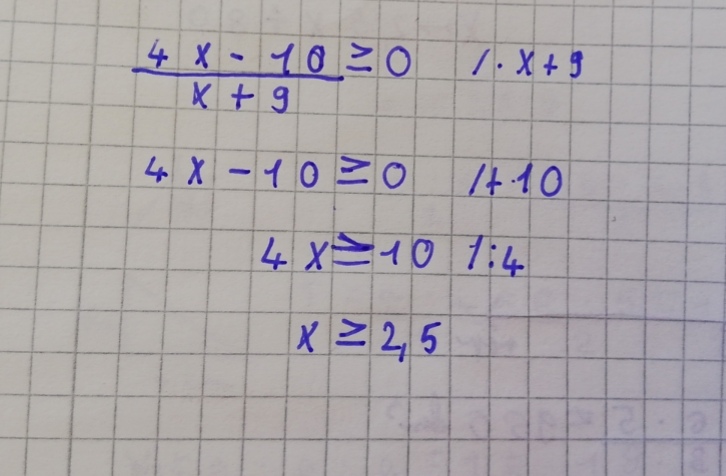 4x - 10 ≥ 0 /· x + 9
x + 9
4x - 10 ≥ 0 /+10
4x ≥ 10 /:4
x ≥ 2,5